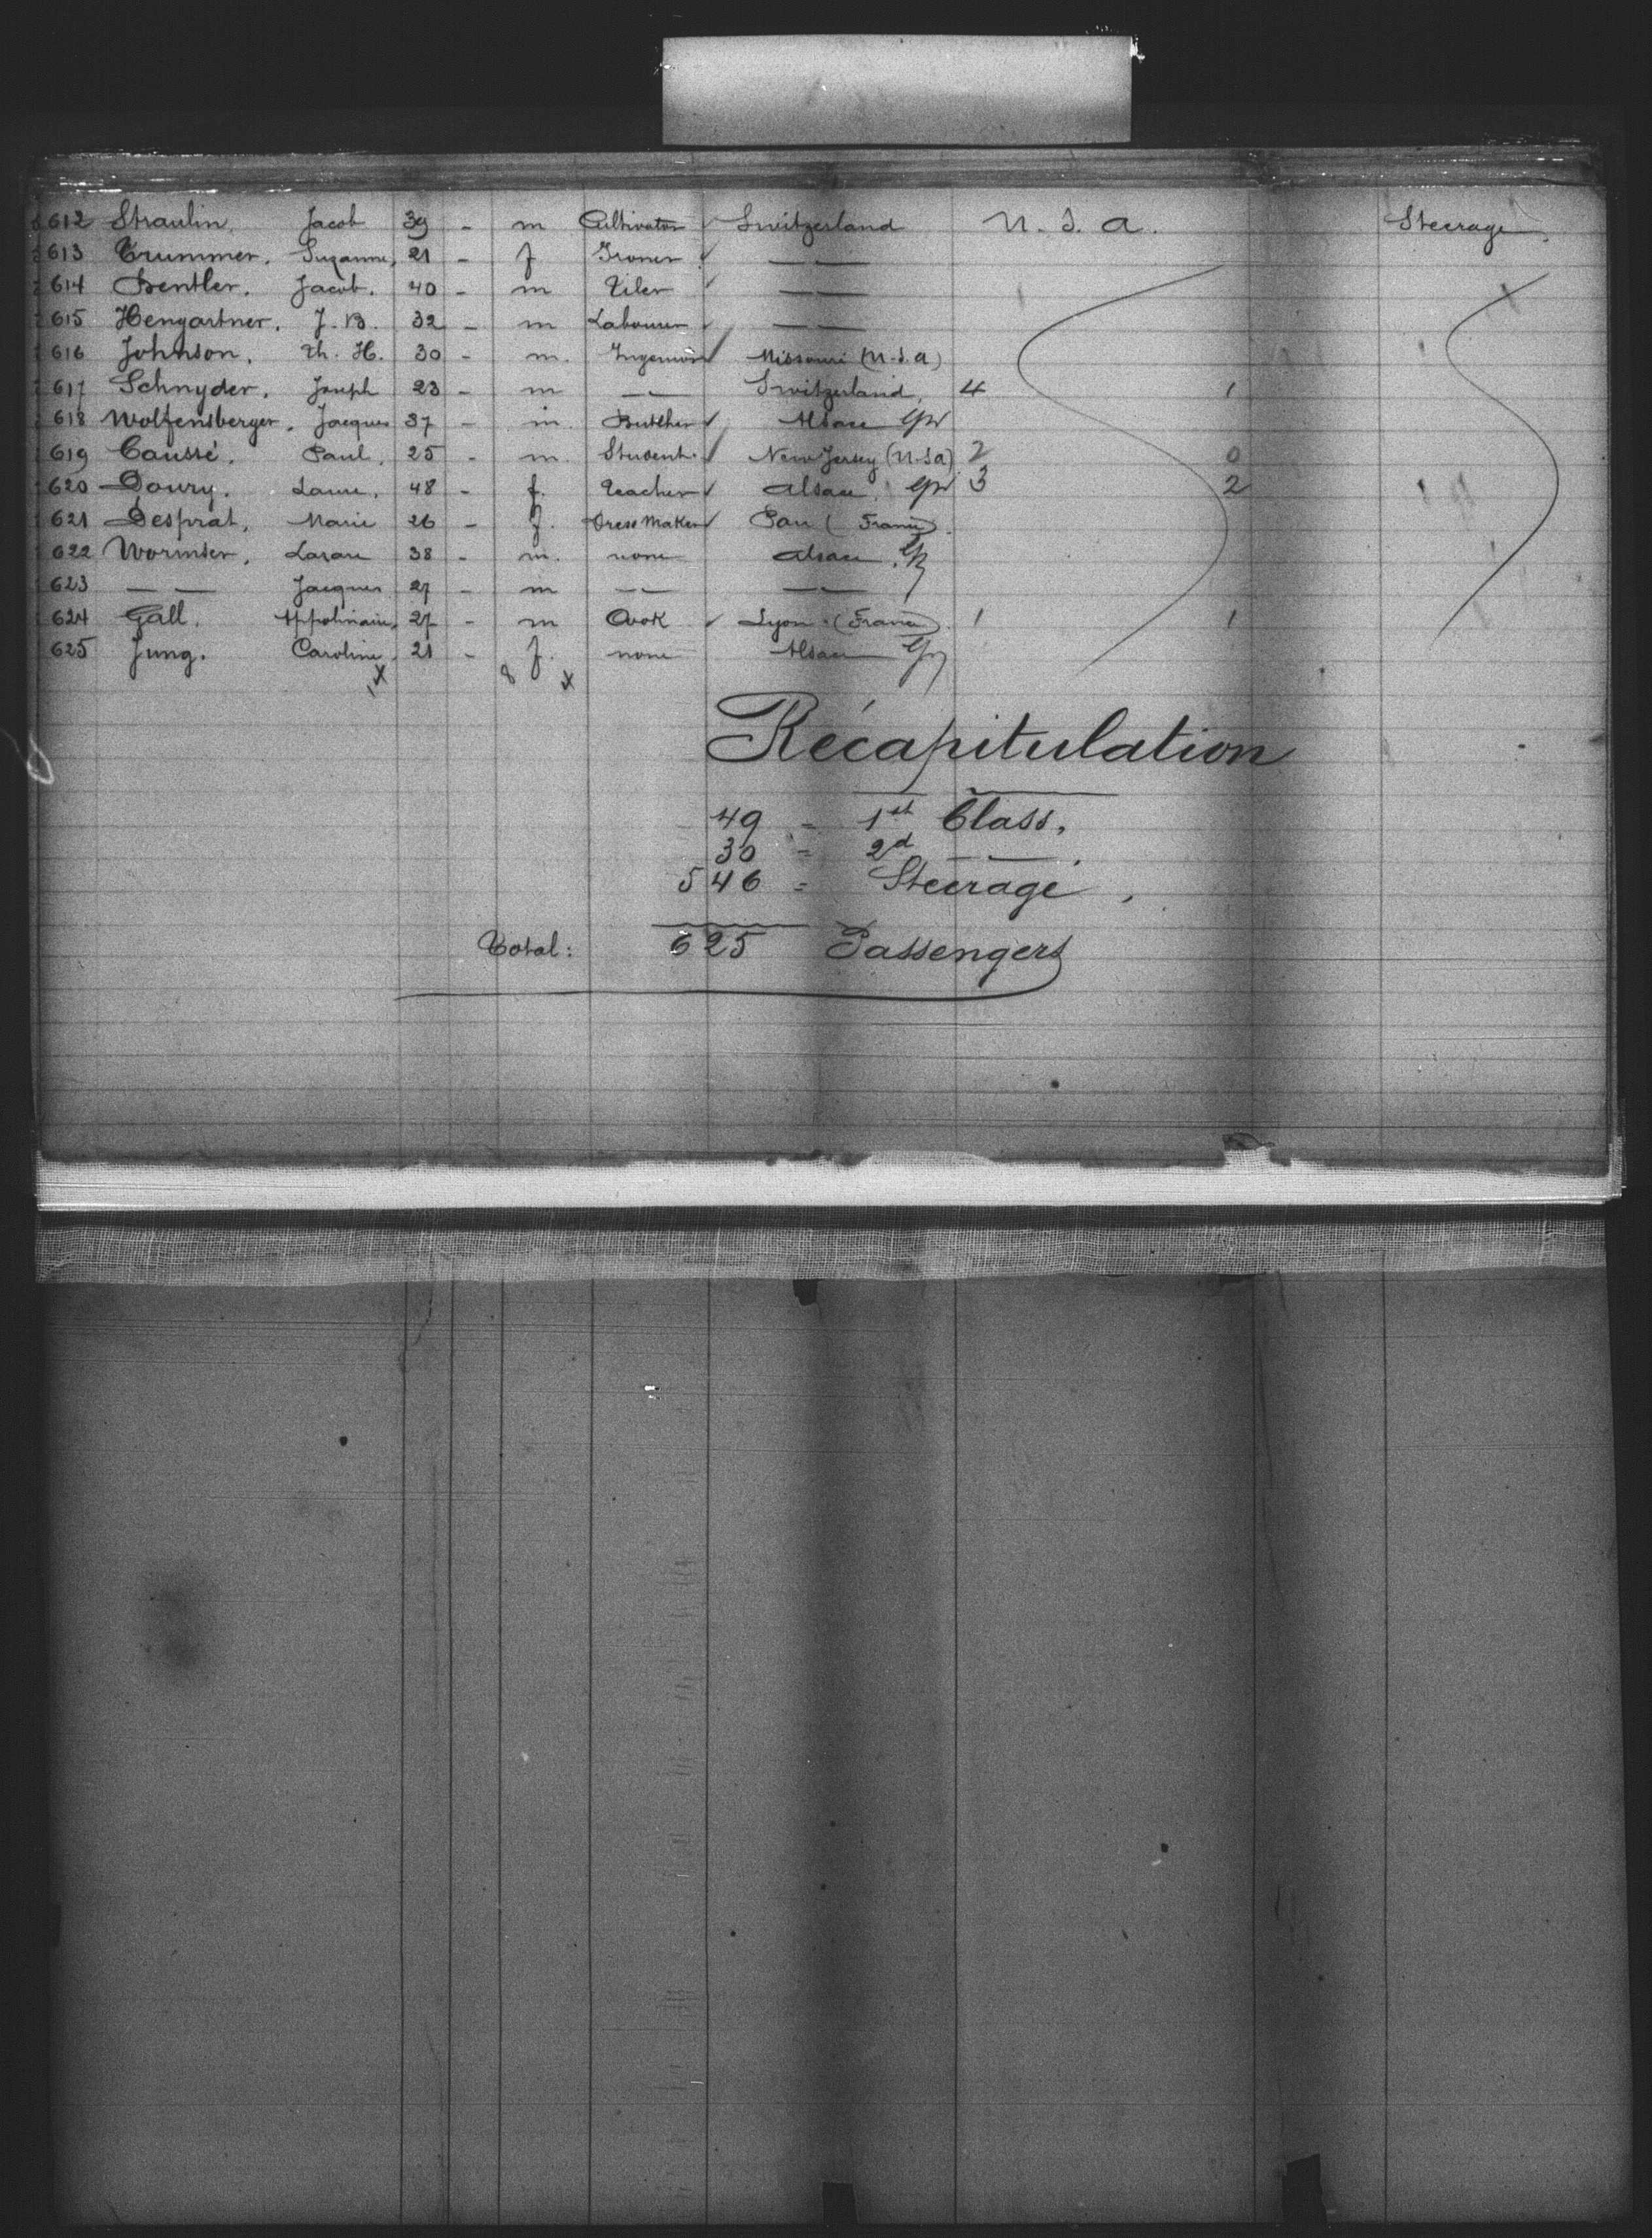 612 Straulin, Jacob 39 - m Cultivator Switzerland U. S. A. Steerage
613 Trummer, Suzanne, 21 - f Ironer — —
614 Bentler, Jacob, 40 - m Tiler — —
615 Hengartner, J. B. 32 - m Labourer — —
616 Johnson, Th. H. 30 - m. Missouri (U.S.A)
617 Schnyder, Joseph 23 - m — — Switzerland, 4 1
618 Wolfensberger, Jacques 37 - m. Butcher Alsace
619 Caussé, Paul, 25 - m. Student New Jersey (U.S.A) 2 0
620 Doury, Laure, 48 - f. Teacher Alsace, 3 2
621 Desprat, Marie 26 - f. Dress Maker Pau (France)
622 Wormser, Lazare 38 - m. none Alsace
623 — — Jacques 27 - m — — — —
624 Gall, Appolinaire, 27 - m Cook Lyon (France) 1 1
625 Jung, Caroline, 21 - f. none Alsace
Récapitulation
49 - 1st Class,
30 - 2d — —
546 = Steerage,
Total: 625 Passengers